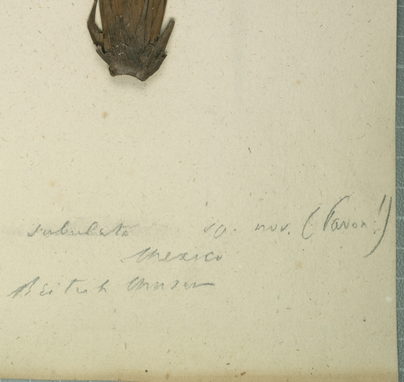 subulata sp. nov. (Pavon!)
Mexico
British Museum